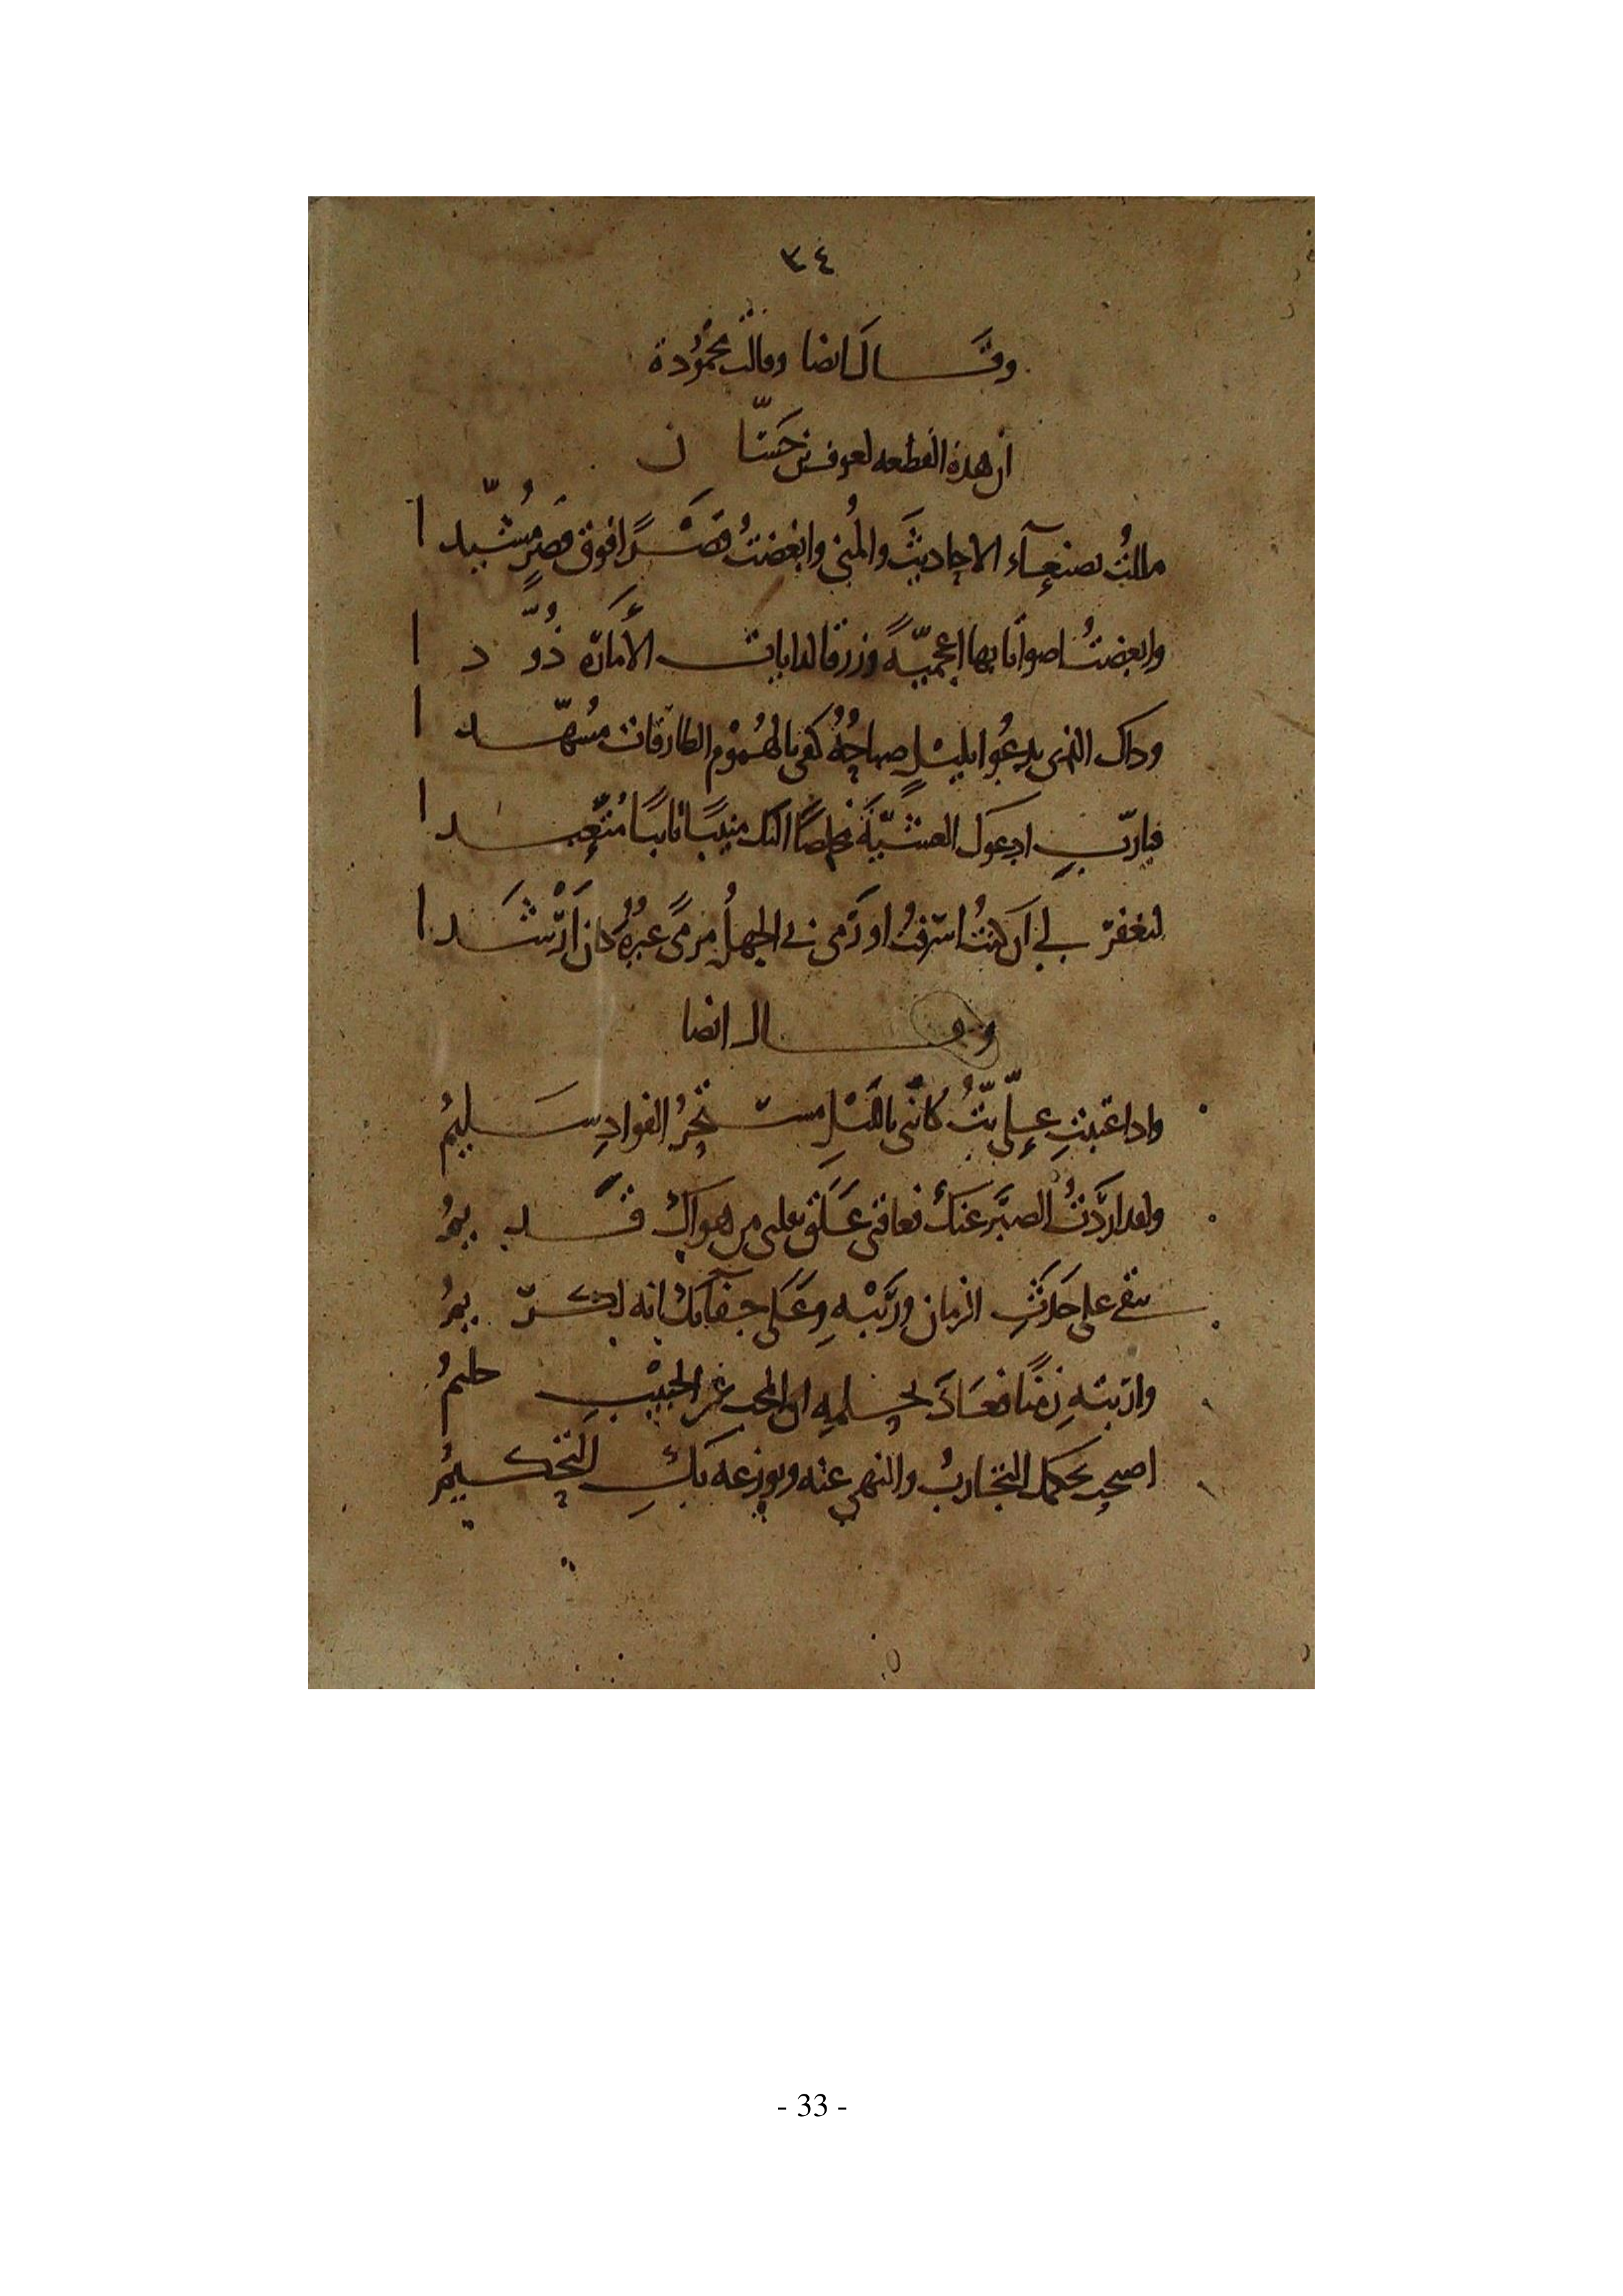 ٣٤
وقال ايضا وقالت محمودة
ان هذه القطعه لعوف بن حسّان
مللتُ بصنعآء الاحاديثَ والمُنى وابغضتُ قصْرًا فوق قصرٍ مُشيّدا
وابغضتُ اصواتا بها اعجميّةً وزرقا لدايات الأمارَه ذُوَّدا
وداك الذى يدعُوا بليْلٍ صباحُهُ كفى بالهُمُوْم الطارقات مُسهّدا
فيا ربِّ ادعوك العشيّةَ مخلصًا اليك منيبًا تايبًا مُتعبّدا
لتغفرَ لي ان كنتُ اسرفتُ او رَمى بي الجهلُ مرمًى غيرُهُ كان ارْشَدا
وقال ايضا
وادا عتبتِ علىّ بتُّ كأنّى بالليْل مستحرُ الفوادِ سليمُ
ولقد اردْتُ الصبْرَ عنكِ فعاقنى عَلَقٌ بقلبى من هواكِ قديمُ
يبقى على حَدَثِ الزمان ورَيْبهِ وعَلَى جفآئكِ انه لكريمُ
واربتهِ زمنًا فعَادَ بحلمهِ ان المحب عن الحبيْبِ حليمُ
التجارب والنهى عنه ويوزعه بكِ التحكيمُ
- 33 -